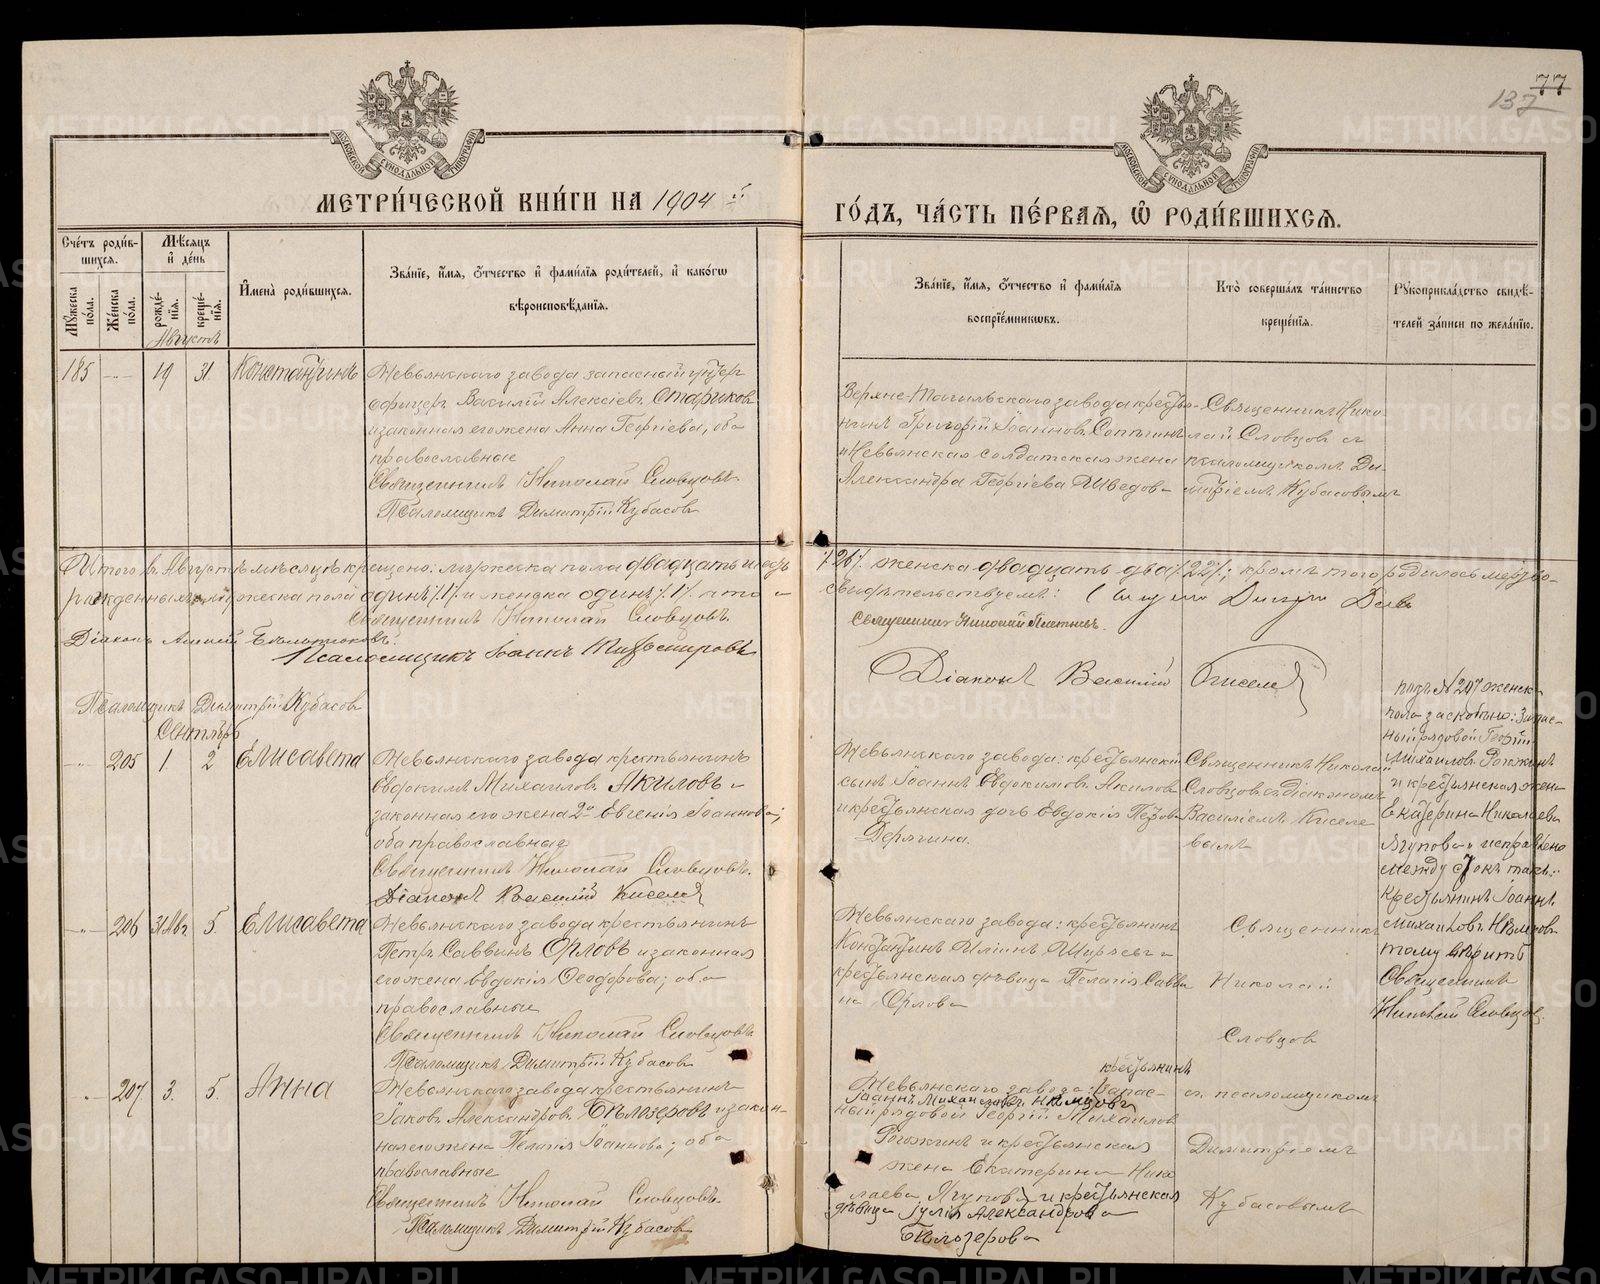 77
137
МОСКОВСКОЙ СѴНОДАЛЬНОЙ ТИПОГРАФІИ
МОСКОВСКОЙ СѴНОДАЛЬНОЙ ТИПОГРАФІИ
МЕТРИ́ЧЕСКОЙ КНИ́ГИ НА 1904
ГО́ДЪ, ЧА́СТЬ ПЕ́РВАѦ, Ѡ҆ РОДИ́ВШИХСѦ.
Сче́тъ роди́в-
шихся.
Мѣ́сяцъ
и҆ де́нь
Мꙋ́жеска по́ла.
Же́нска по́ла.
рожде́-нїя.
креще́-нїя.
И҆мена̀ роди́вшихся.
Зва́нїе, и҆́мя, ѻ҆́тчество и҆ фами́лїя роди́телей, и҆ како́гѡ
вѣроисповѣ́данїя.
Зва́нїе, и҆́мя, ѻ҆́тчество и҆ фами́лїя
воспрїе́мникѡвъ.
Кто̀ соверша́лъ та́инство
креще́нїя.
Рꙋкоприкла́дство свидѣ́-
телей за́писи по жела́нїю.
Августъ
185 — 19 31. Константинъ
Невьянскаго завода запасный унтеръ
офицеръ Василій Алексіевъ Стариковъ
и законная его жена Анна Георгіева, оба
православные
Священникъ Николай Словцовъ.
Псаломщикъ Димитрій Кубасовъ
Верхне-Тагильскаго завода крестья-
нинъ Григорій Іоанновъ
и Невьянская солдатская жена
Александра Георгіева Шведова
Священникъ Нико-
лай Словцовъ съ
псаломщикомъ Ди-
митріемъ Кубасовымъ
Итого въ Августѣ мѣсяцѣ крещено: мужеска пола двадцать
/26/. женска двадцать два /22/; кромѣ того родилось мертво-
рожденныхъ мужеска пола одинъ /1/ и женска одинъ /1/. что
свидѣтельствуемъ:
Священникъ Николай Словцовъ.
Священникъ Николай
Діаконъ
Псаломщикъ Іоаннъ
Діаконъ Василій Киселевъ
Псаломщикъ Димитрій Кубасовъ
Сентябрь
— 205 1. 2 Елисавета
Невьянскаго завода крестьянинъ
Евдокимъ Михаиловъ Акиловъ и
законная его жена 2ю Евгенія Іоаннова;
оба православные
Священникъ Николай Словцовъ.
Діаконъ Василій Киселевъ
Невьянскаго завода: крестьянскій
сынъ Іоаннъ Евдокимовъ Акиловъ
и крестьянская дочь Евдокія Петрова
Дерягина.
Священникъ Николай
Словцовъ съ діакономъ
Василіемъ Киселе-
вымъ
подъ № 207 женск.
пола заскоблено: Запас-
ный рядовой Георгій
Михаиловъ Рогожинъ
и крестьянская жена
Екатерина Николаева
Ягупова и исправлено
между строкъ такъ:
крестьянинъ Іоаннъ
Михаиловъ Нѣмцовъ
тому вѣрить
Священникъ
Николай Словцовъ.
— 206 31 Авг. 5. Елисавета
Невьянскаго завода крестьянинъ
Петръ Саввинъ Орловъ и законная
его жена Евдокія Ѳеодорова; оба
православные
Священникъ Николай Словцовъ
Псаломщикъ Димитрій Кубасовъ
Невьянскаго завода: крестьянинъ
Константинъ Иліинъ Ширяевъ и
крестьянская дѣвица Пелагія Савви-
на Орлова
Священникъ
Николай
Словцовъ
— 207. 3. 5. Анна
Невьянскаго завода крестьянинъ
Іаковъ Александровъ Бѣлозеровъ и закон-
ная его жена Пелагія Іоаннова; оба
православные
Священникъ Николай Словцовъ.
Псаломщикъ Димитрій Кубасовъ
крестьянинъ
Невьянскаго завода: Запас-
Іоаннъ Михаиловъ Нѣмцовъ
ный рядовой Георгій Михаиловъ
Рогожинъ и крестьянская
жена Екатерина Нико-
лаева Ягупова и крестьянская
дѣвица Іулія Александрова
Бѣлозерова
съ псаломщикомъ
Димитріемъ
Кубасовымъ
METRIKI.GASO-URAL.RU